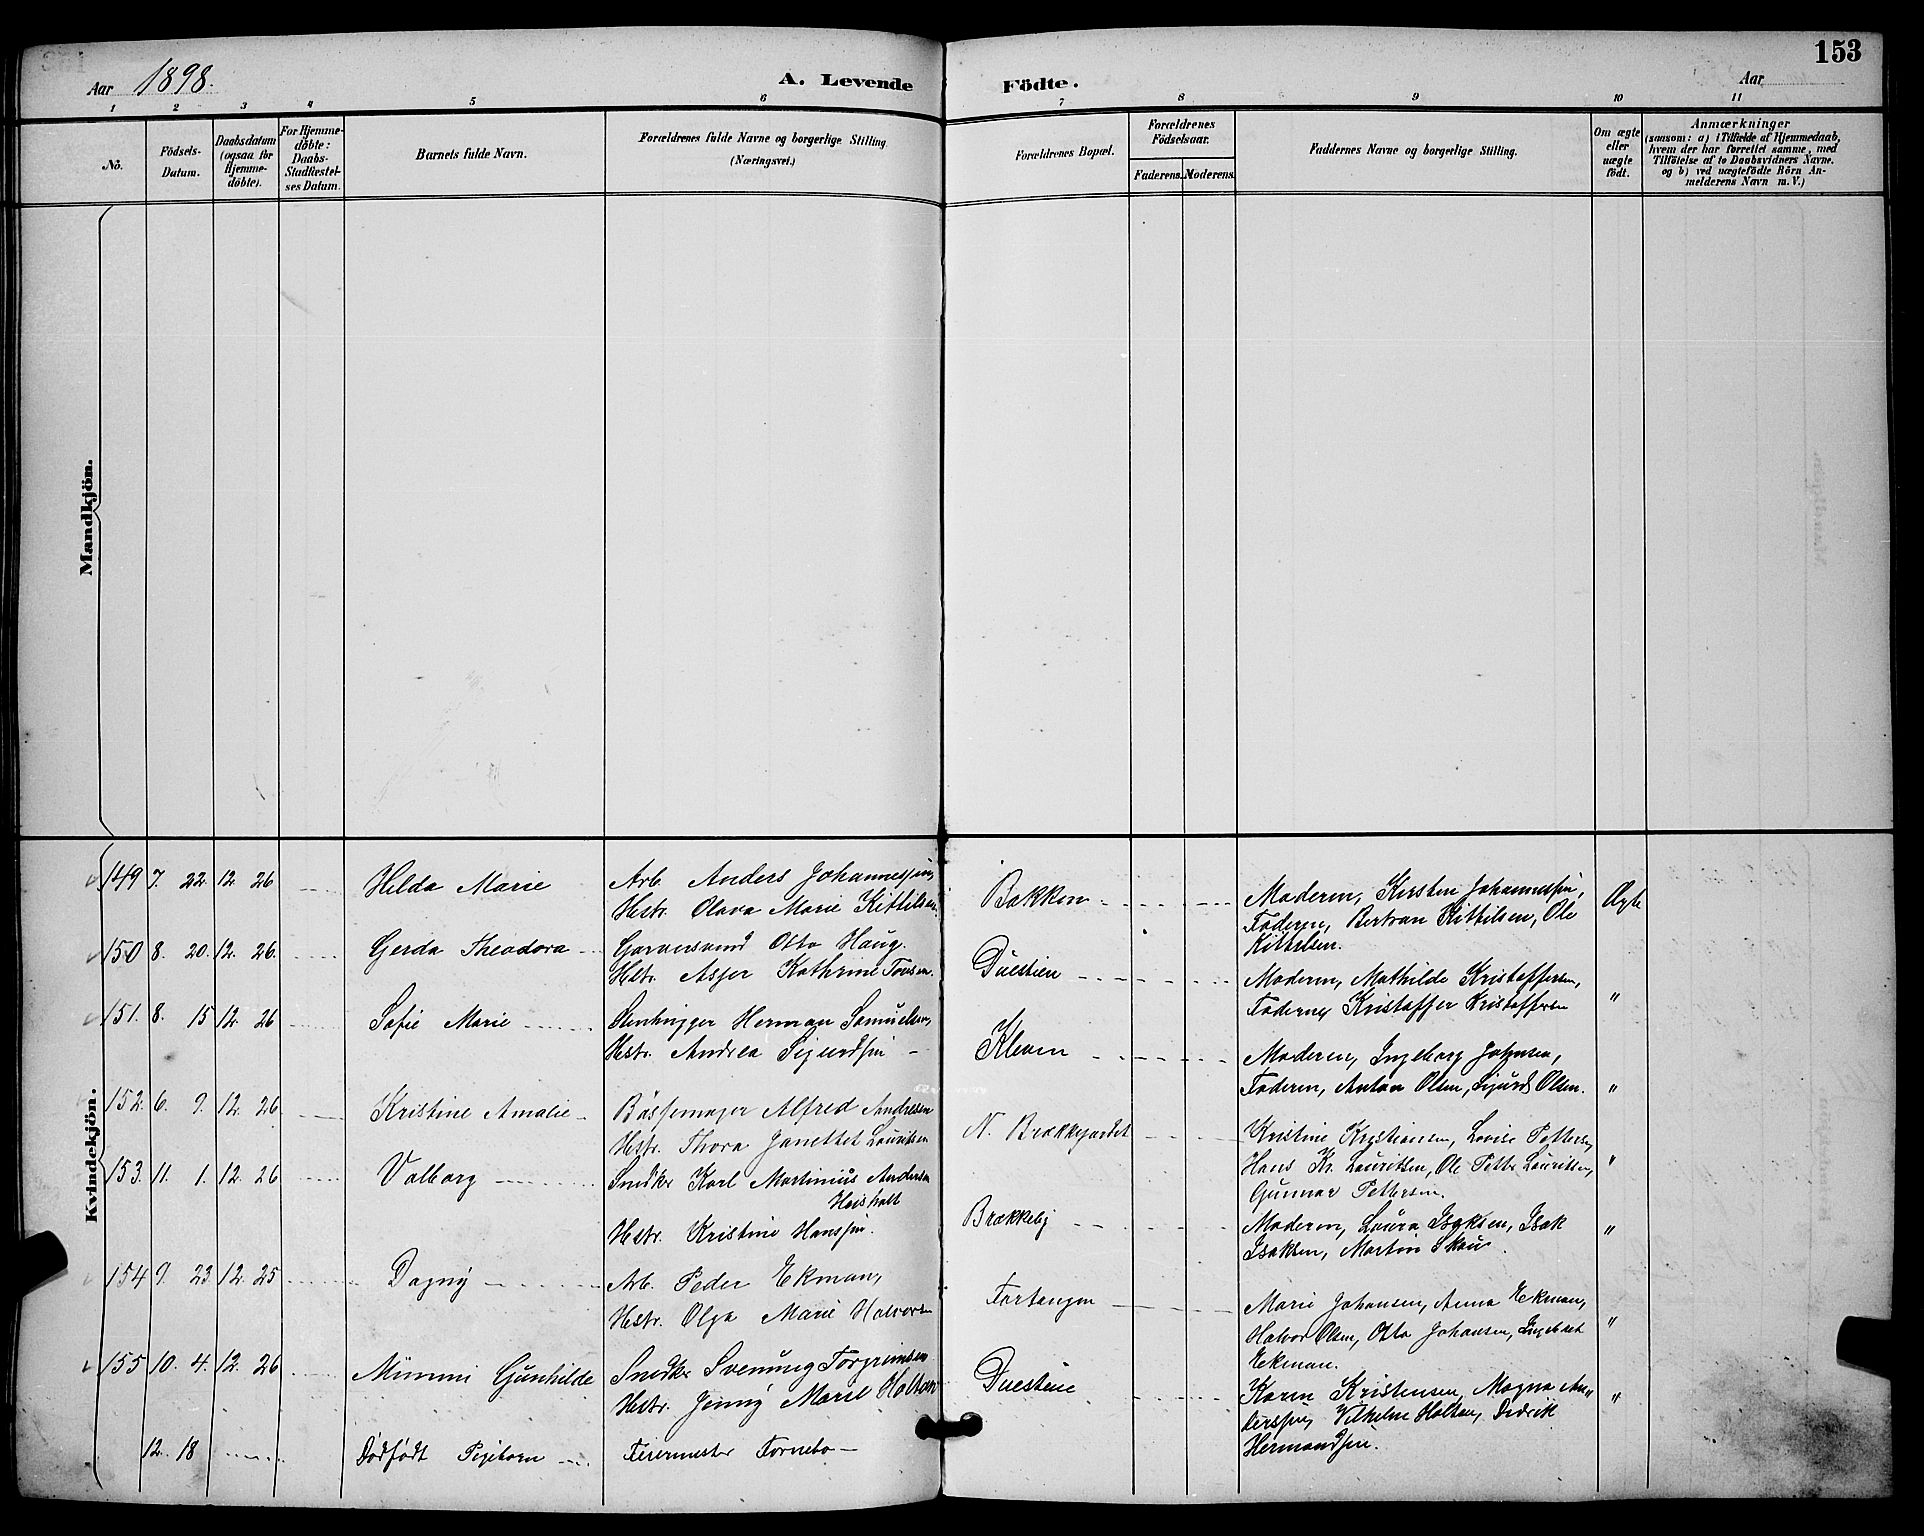 153
Aar 1898.
A. Levende Födte.
Aar
1 2 3 4 5 6 7 8 9 10 11
No.
Födsels-Datum.
Daabsdatum (ogsaa for Hjemmedöbte).
For Hjemmedöbte: Daabs-Stadfæstelses Datum.
Barnets fulde Navn.
Forældrenes fulde Navne og borgerlige Stilling (Næringsvei.)
Forældrenes Bopæl.
Forældrenes Födselsaar.
Faderens. Moderens.
Faddernes Navne og borgerlige Stilling.
Om ægte eller uægte födt.
Anmærkninger
(saasom: a) i Tilfælde af Hjemmedaab, hvem der har forrettet samme, med Tilföielse af to Daabsvidners Navne. og b) ved uægtefödte Börn Anmelderens Navn m. V.)
Mandkjön.
Kvindekjön.
149 7. 22. 12. 26 Hilda Marie Arb. Anders Johannessen, Bakken Moderen, Kirsten Johannessen, Ægte
Hstr. Olava Marie Kittilsen. Faderen, Bertran Kittilsen, Ole
Kittilsen.
150 8. 20. 12. 26. Gerda Theodora Garversvend Otto Haug. Duestien Moderen, Mathilde Kristoffersen, "
Hstr. Asjer Kathrine Tovsen. Faderen, Kristoffer Kristoffersen
151. 8. 15 12. 26 Sofie Marie Stenhugger Herman Samuelsen, Kleven Moderen, Ingeborg Johnsen,
Hstr. Andrea Sigurdsen Faderen, Anton Olsen, Sigurd Olsen. "
152. 6. 9. 12. 26 Kristine Amalie Bössemager Alfred Andresen N. Brækkejordet Kristine Kristiansen, Lovise Pettersen,
Hstr. Thora Janettet Lauritsen Hans Kr. Lauritsen, Ole Petter Lauritsen, "
Gunnar Pettersen.
153. 11. 1. 12. 26 Valborg Snedker Karl Martinius Andersen Brækkeby Moderen, Laura Isaksen, Isak "
Heisholt
Hstr. Kristine Hanssen. Isaksen, Martin Skau.
154 9. 23. 12. 25 Dagny Arb. Peder Ekman, Fartangen Marie Johansen, Anna Ekman,
Hstr. Olga Marie Halvorsen Halvor Olsen, Otto Johansen, Ingebret "
Ekman.
155 10. 4. 12. 26 Mimmi Gunhilde Snedker Svenung Torgrimsen Duestien Karen Kristensen, Magna An- "
Hstr. Jenny Marie Holtan derssen, Vilhelm Holtan, Dedrik
Hermandsen.
12. 18 Dødfødt Pigebarn Feiermester Fornebo